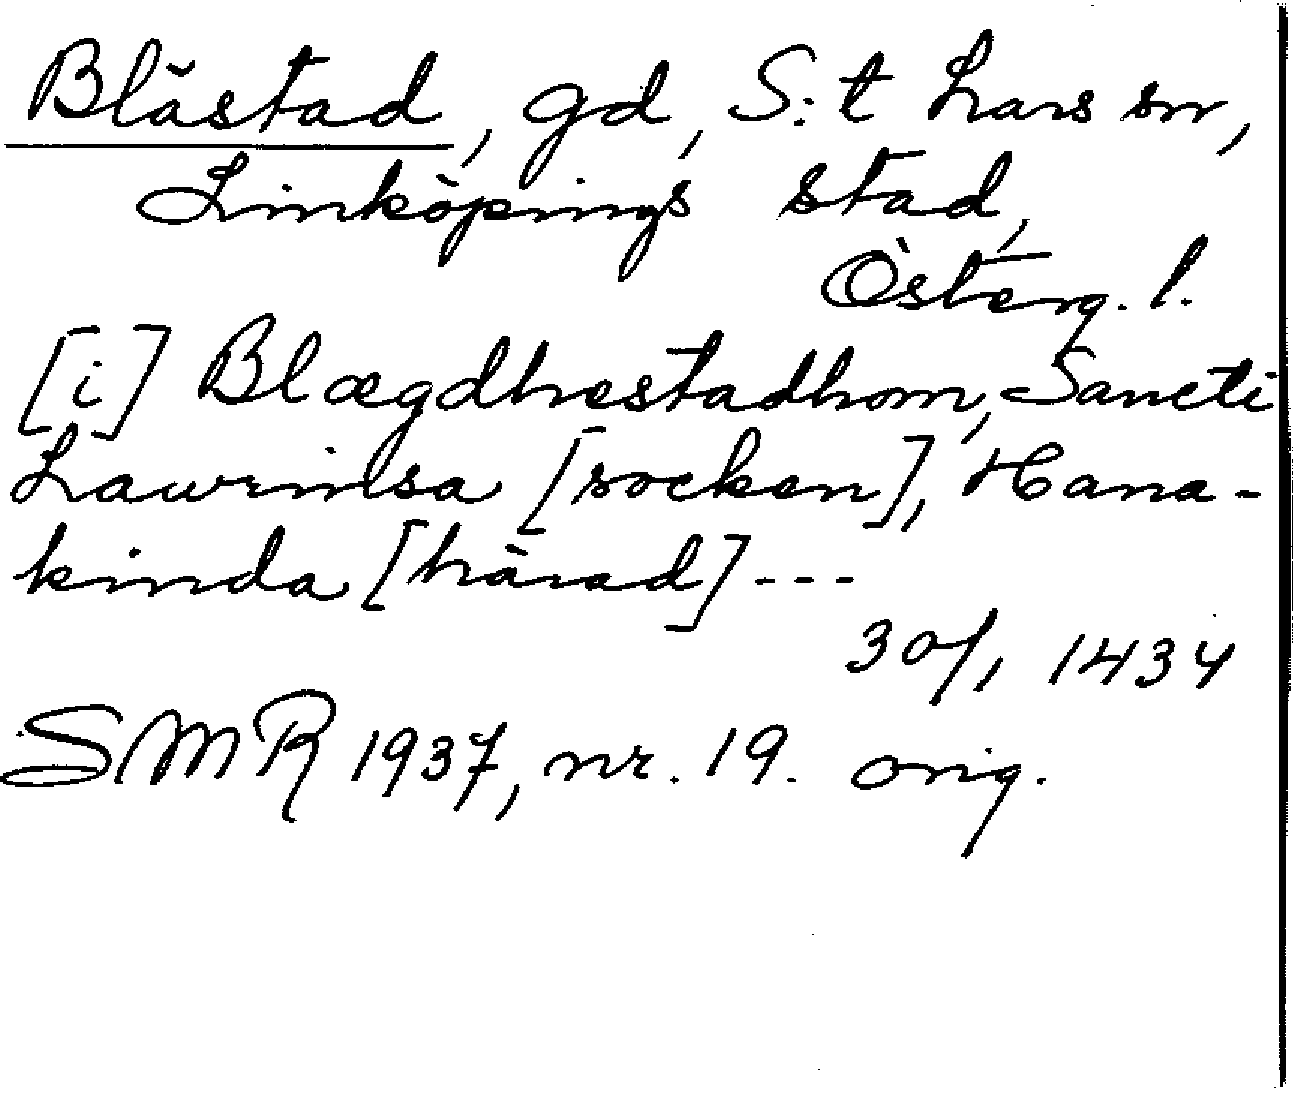 Blästad, gd, S:t Lars sn,
Linköpings stad,
Österg. l.
[i] Blægdhestadhom, Sancti
Lawrinsa [socken], Hana-
kinda [härad] ---
30/1 1434
SMR 1937, nr. 19. orig.